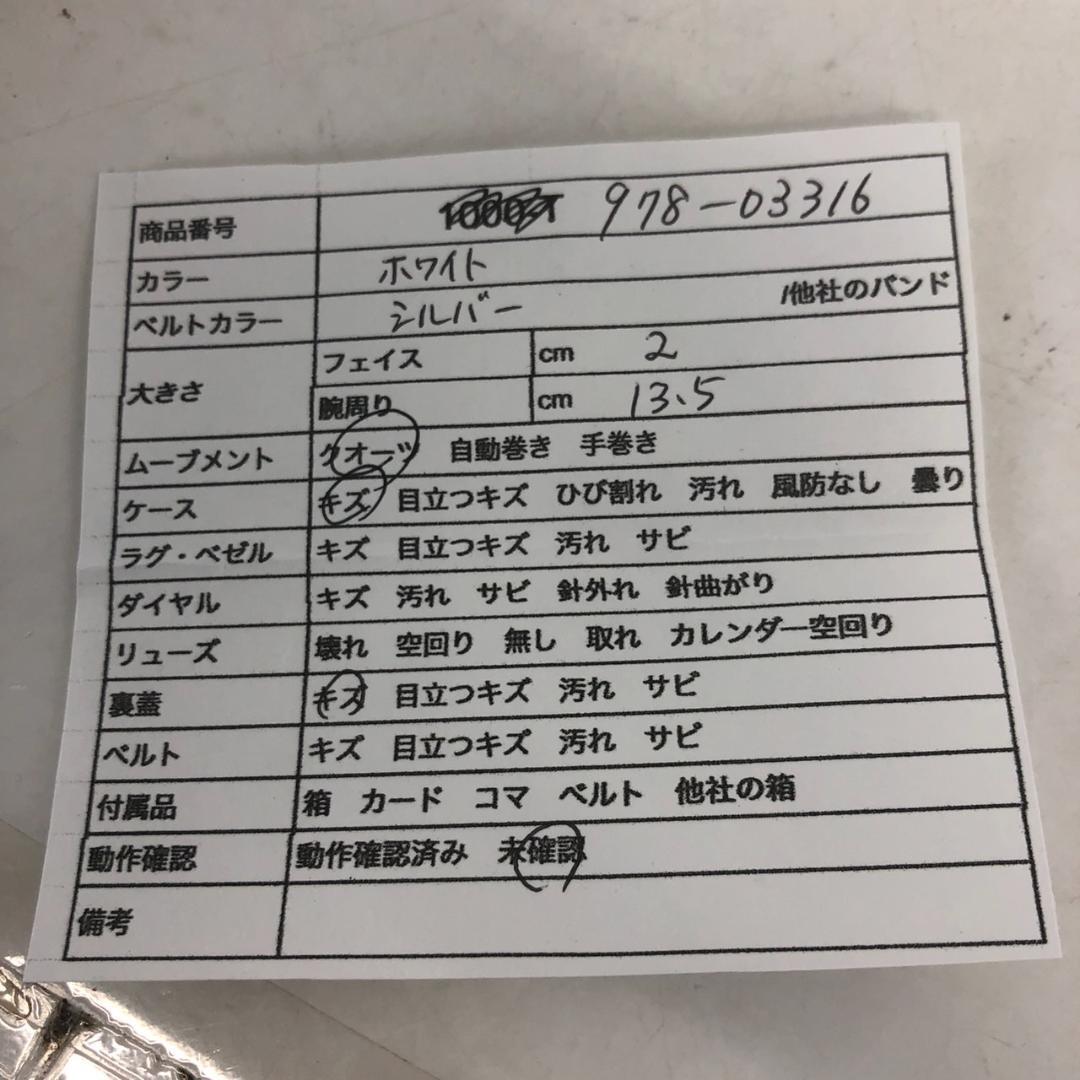 商品番号 978-03316
カラー ホワイト
ベルトカラー シルバー /他社のバンド
大きさ フェイス cm 2
腕周り cm 13.5
ムーブメント クオーツ 自動巻き 手巻き
ケース キズ 目立つキズ ひび割れ 汚れ 風防なし 曇り
ラグ・ベゼル キズ 目立つキズ 汚れ サビ
ダイヤル キズ 汚れ サビ 針外れ 針曲がり
リューズ 壊れ 空回り 無し 取れ カレンダー空回り
裏蓋 キズ 目立つキズ 汚れ サビ
ベルト キズ 目立つキズ 汚れ サビ
付属品 箱 カード コマ ベルト 他社の箱
動作確認 動作確認済み 未確認
備考